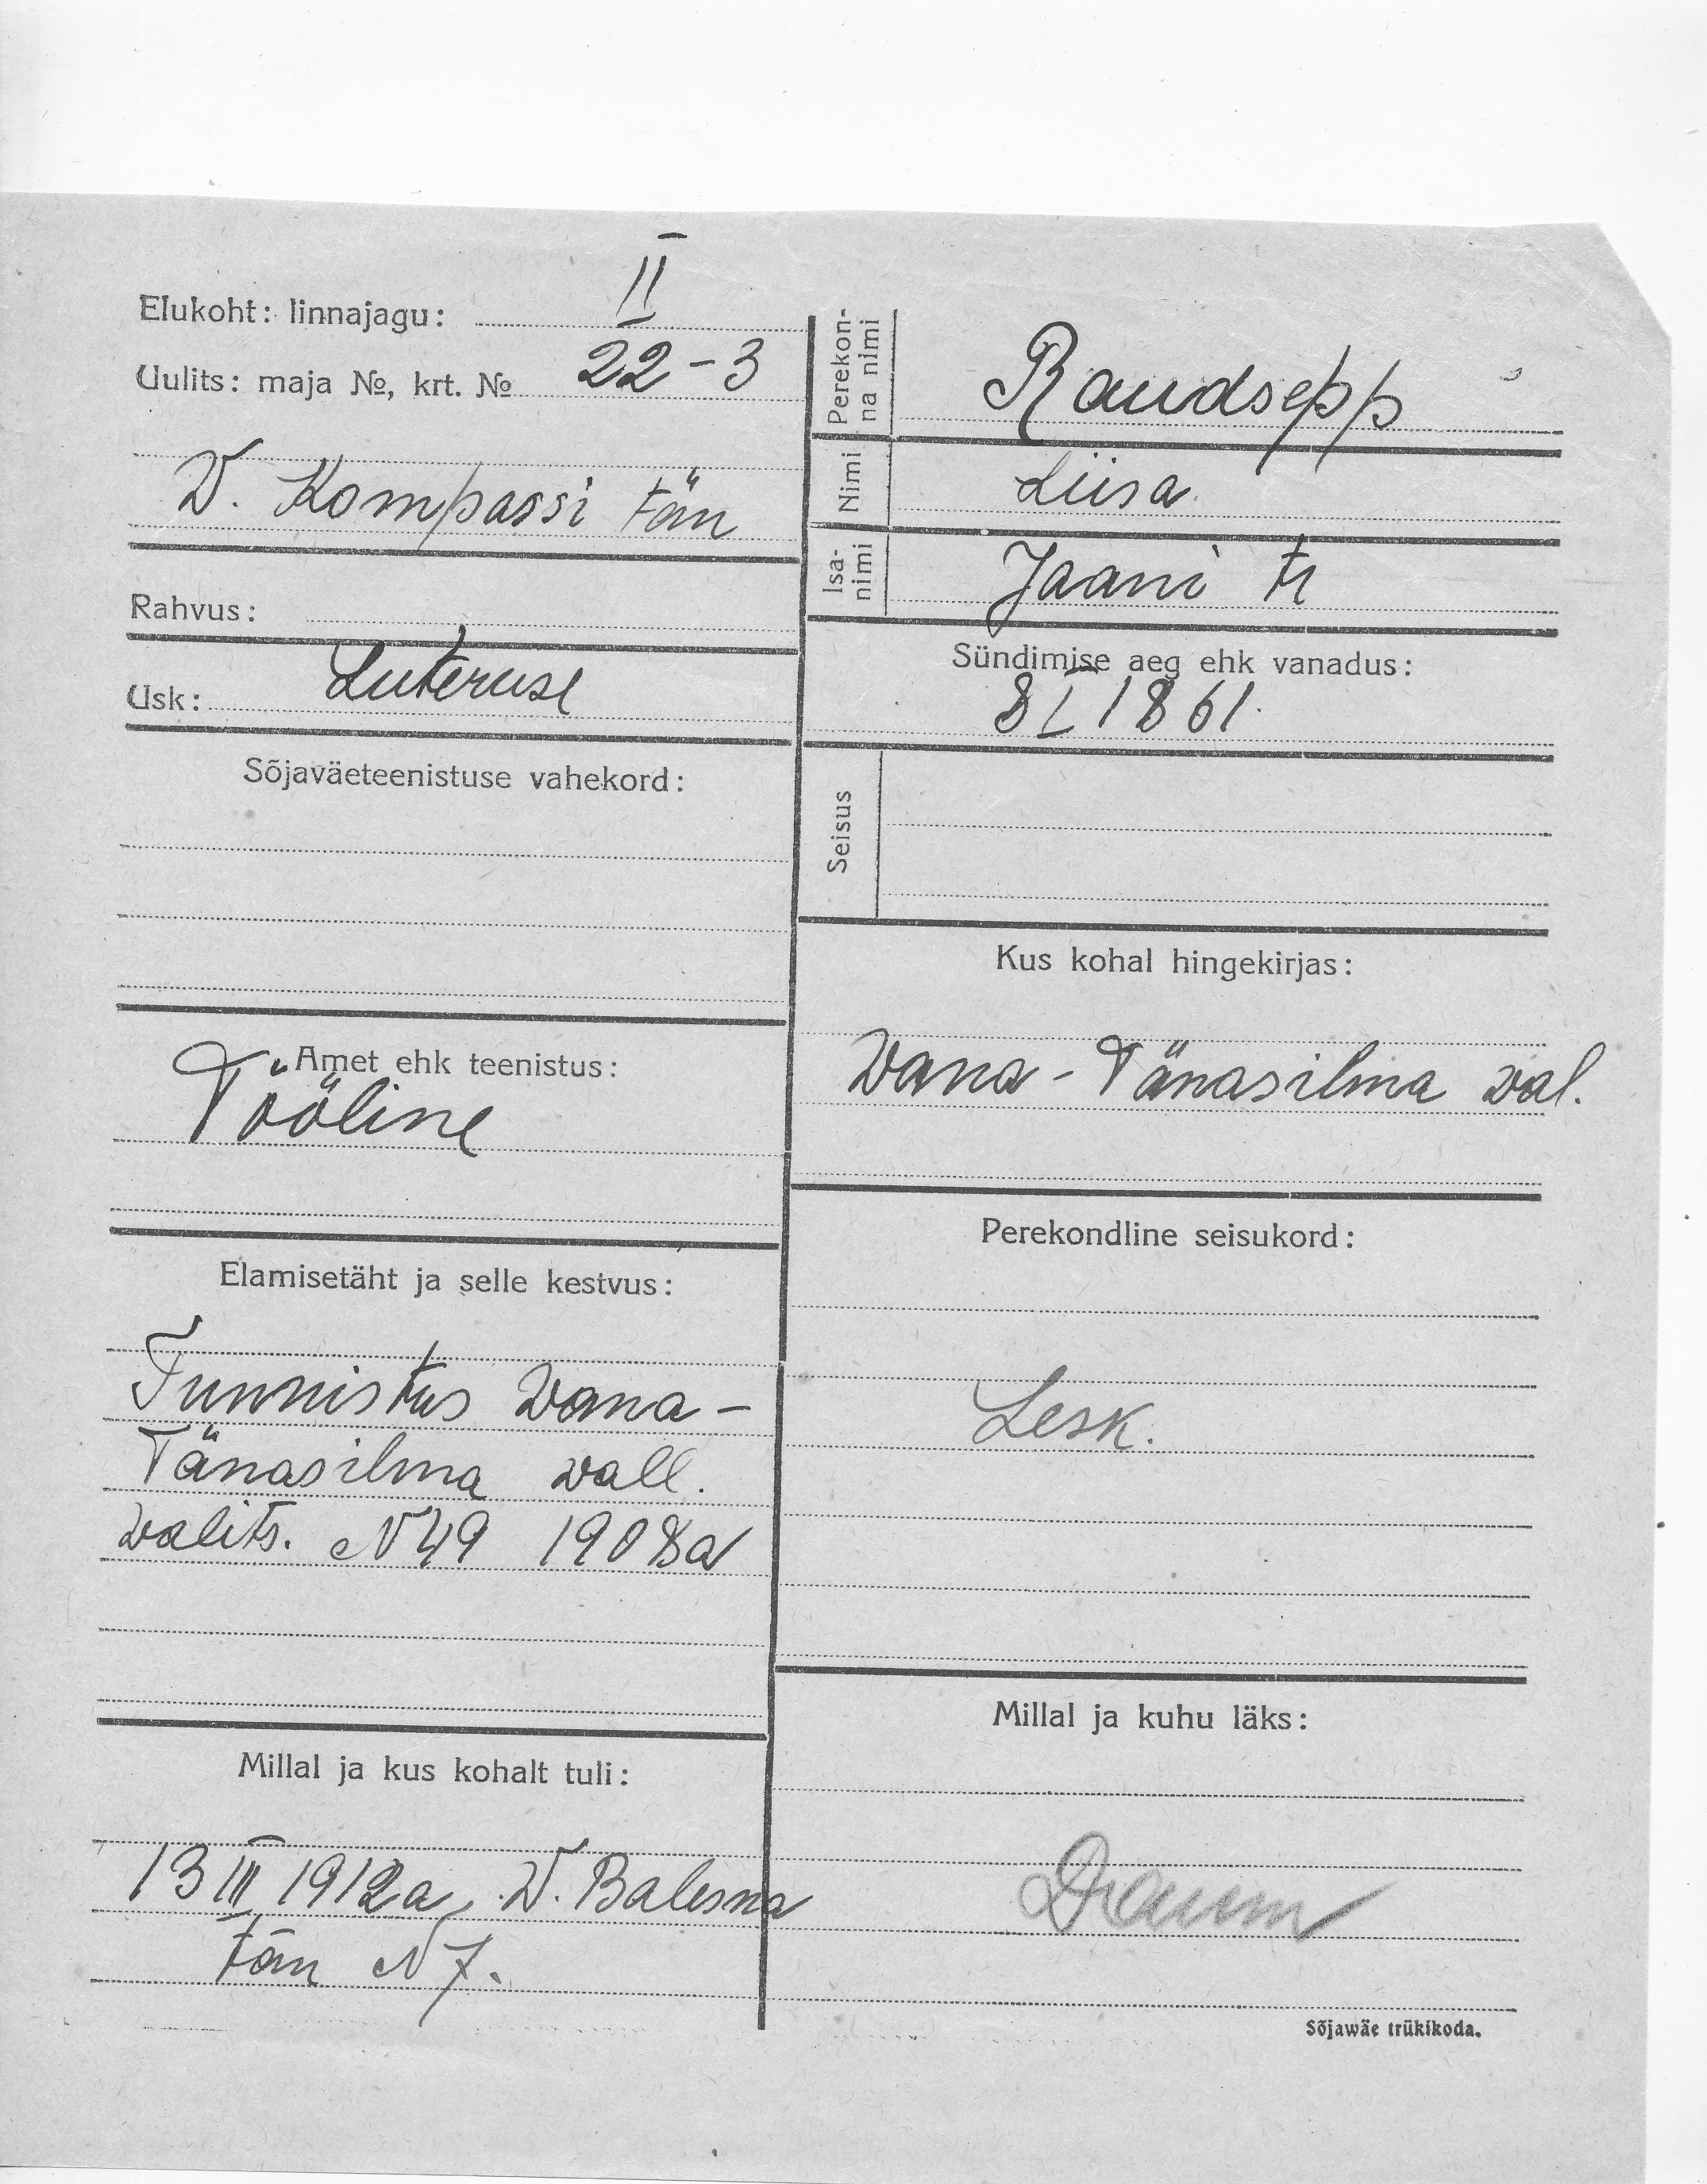 Elukoht: linnajagu: II
Uulits: maja №, krt. № 22-3
W. Kompassi tän
Rahvus:
Usk: Luteruse
Sõjaväeteenistuse vahekord:
Amet ehk teenistus:
Tööline
Elamisetäht ja selle kestvus:
Tunnistus Wana-
Tänasilma wall.
walits. N 49 1908 a
Millal ja kus kohalt tuli:
13 III 1912 a, W.
tän N 7.
Perekon-
na nimi
Raudsepp
Nimi
Liisa
Isa-
nimi
Jaani tr
Sündimise aeg ehk vanadus:
8 I 1861.
Seisus
Kus kohal hingekirjas:
Wana-Tänasilma wal.
Perekondline seisukord:
Lesk.
Millal ja kuhu läks:
Sõjawäe trükikoda.